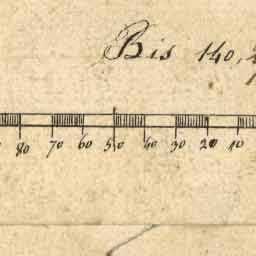 Bis 140,
80 70 60 50 40 30 20 10